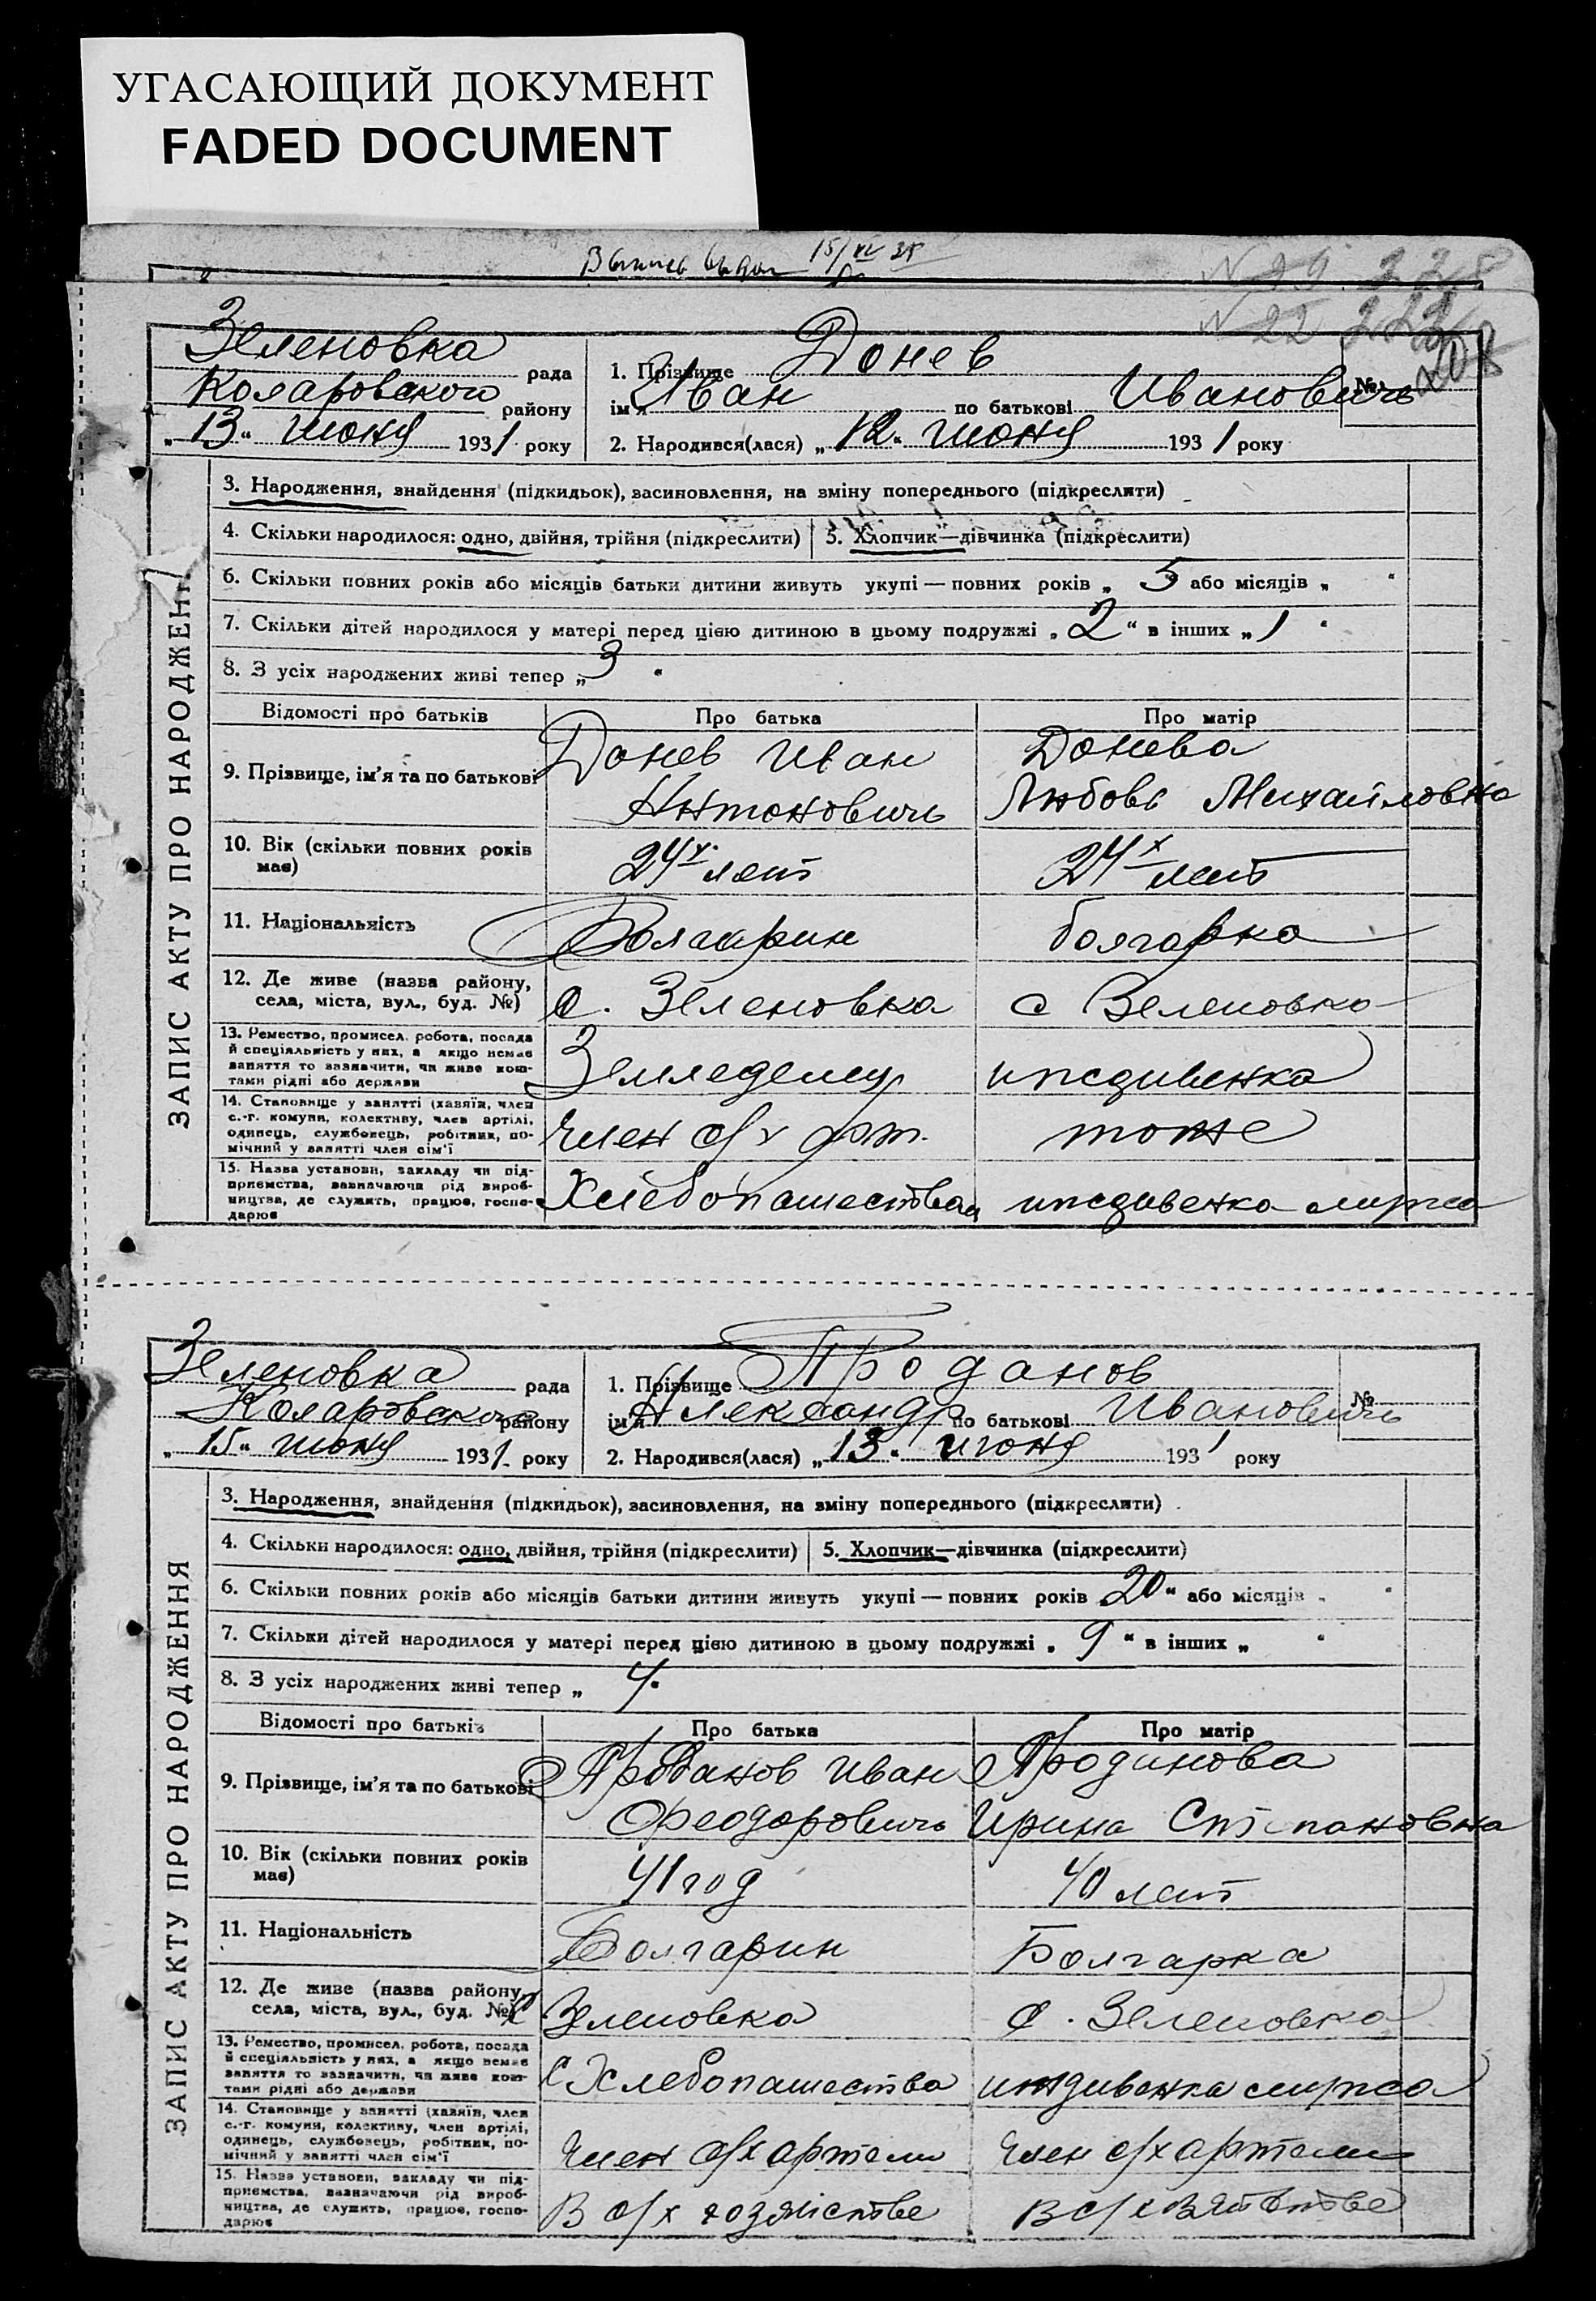 УГАСАЮЩИЙ ДОКУМЕНТ
FADED DOCUMENT
15/XII 38
№ 22
208
Зеленовка рада
Коларовского району
„13“ июня 1931 року
1. Прізвище Донев
ім'я Иван по батькові Иванович
№
2. Народився(лася) „12“ июня 1931 року
ЗАПИС АКТУ ПРО НАРОДЖЕН
3. Народження, знайдення (підкидьок), засиновлення, на зміну попереднього (підкреслити)
4. Скільки народилося: одно, двійня, трійня (підкреслити)
5. Хлопчик—дівчинка (підкреслити)
6. Скільки повних років або місяців батьки дитини живуть укупі — повних років „5 або місяців „ “
7. Скільки дітей народилося у матері перед цією дитиною в цьому подружжі „2“ в інших „1“
8. З усіх народжених живі тепер „3“
Відомості про батьків Про батька Про матір
9. Прізвище, ім'я та по батькові
Донев Иван
Антонович
Донева
Любовь Михайловна
10. Вік (скільки повних років
має)
24х лет
24х лет
11. Національність Болгарин болгарка
12. Де живе (назва району,
села, міста, вул., буд. №)
с. Зеленовка с Зеленовка
13. Ремество, промисел, робота, посада
й спеціальність у них, а якщо немає
заняття то зазначити, чи живе кош-
тами рідні або держави
Земледелец иждивенка
14. Становище у занятті (хазяїн, член
с.-г. комуни, колективу, член артілі,
одинець, службовець, робітник, по-
мічний у занятті член сім'ї
Член с/х арт. тоже
15. Назва установи, закладу чи під-
приємства, зазначаючи рід вироб-
ництва, де служить, працює, госпо-
дарює
иждивенка мужа
Зеленовка рада
Коларовского району
„15“ июня 1931 року
1. Прізвище Проданов
ім'я Александр по батькові Иванович
№
2. Народився(лася) „13“ июня 1931 року
ЗАПИС АКТУ ПРО НАРОДЖЕННЯ
3. Народження, знайдення (підкидьок), засиновлення, на зміну попереднього (підкреслити)
4. Скільки народилося: одно, двійня, трійня (підкреслити)
5. Хлопчик—дівчинка (підкреслити)
6. Скільки повних років або місяців батьки дитини живуть укупі — повних років „20“ або місяців „ “
7. Скільки дітей народилося у матері перед цією дитиною в цьому подружжі „9“ в інших „ “
8. З усіх народжених живі тепер „4“
Відомості про батьків Про батька Про матір
9. Прізвище, ім'я та по батькові
Проданов Иван
Феодорович
Проданова
Ирина Степановна
10. Вік (скільки повних років
має)
41 год
40 лет
11. Національність Болгарин Болгарка
12. Де живе (назва району,
села, міста, вул., буд. №)
с Зеленовка с. Зеленовка
13. Ремество, промисел, робота, посада
й спеціальність у них, а якщо немає
заняття то зазначити, чи живе кош-
тами рідні або держави
Хлебопашества иждивенка мужа
14. Становище у занятті (хазяїн, член
с.-г. комуни, колективу, член артілі,
одинець, службовець, робітник, по-
мічний у занятті член сім'ї
Член с/х артели Член с/х артели
15. Назва установи, закладу чи під-
приємства, зазначаючи рід вироб-
ництва, де служить, працює, госпо-
дарює
В с/х хозяйстве В с/х